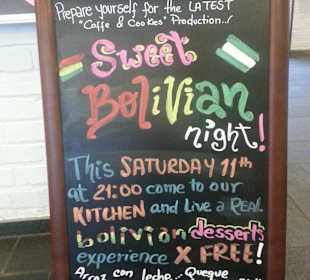 Prepare yourself for the LATEST
"Caffe & Cookies" Production...!
Sweet
Bolivian
night!
This SATURDAY 11th
at 21:00 come to our
KITCHEN and Live a REAL
bolivian desserts
experience X FREE!
Arroz con leche... Queque